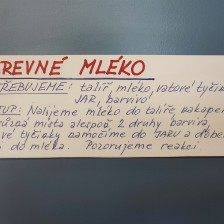 REVNÉ MLÉKO
TŘEBUJEME: talíř, mléko, vatové tyčin
JAR, barvivo
TUP: Nalijeme mléko do talíře, zakape
různá místa alespoň 2 druhy barviva
vé tyčinky namočíme do JARU a
do mléka. Pozorujeme reakci